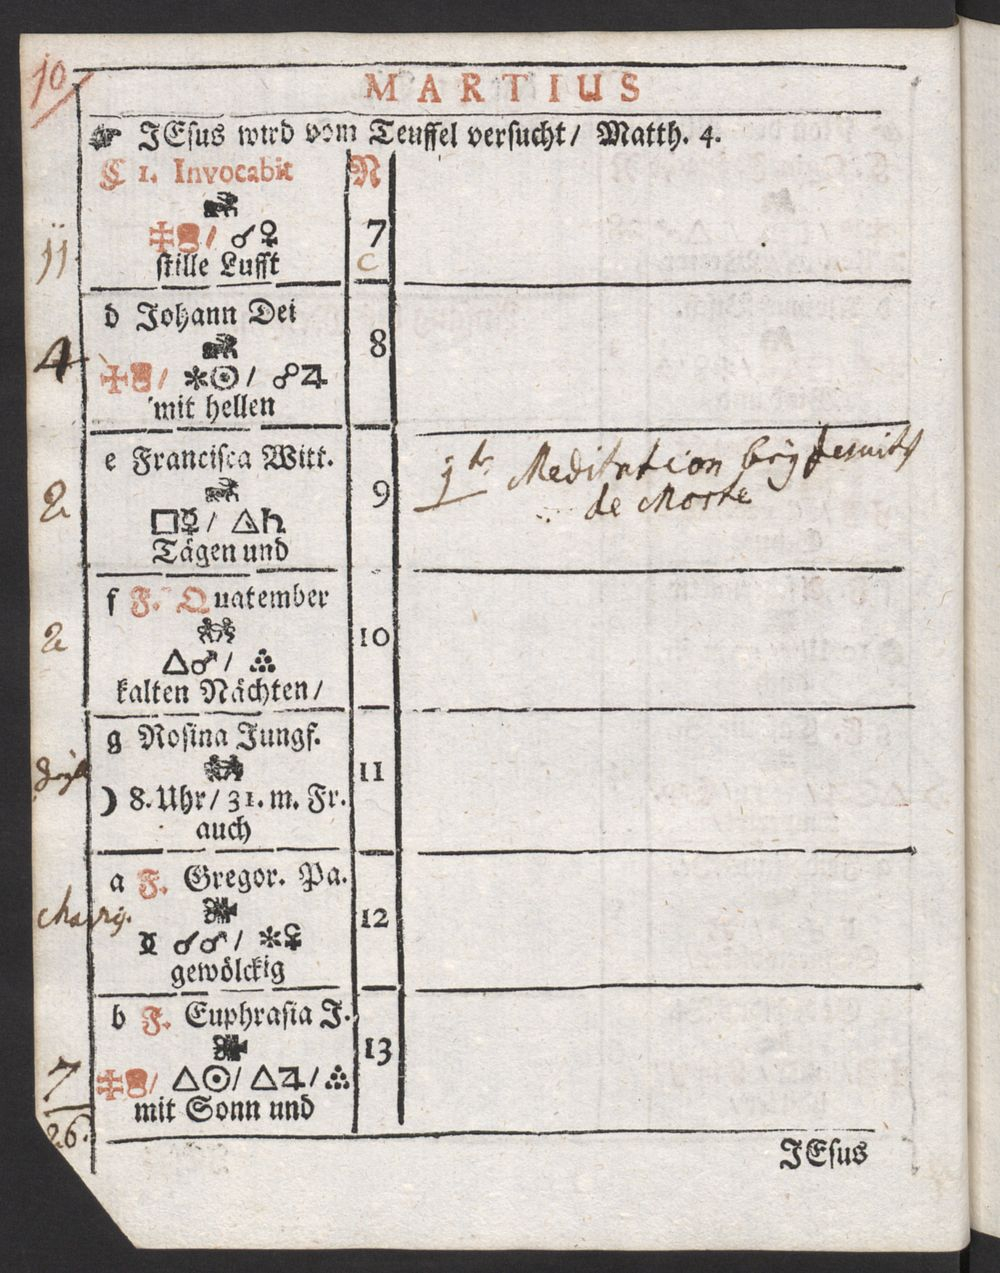 10
MARTIUS
☞ JEsus wird vom Teuffel versucht/ Matth. 4.
C 1. Invocabit N
♂♀ 7
stille Lufft c
11.
d Johann Dei
8
4
/ ✱☉/ ☍♃
mit hellen
e Francisca Witt.
1te Meditation
de Morte
9
2
□☿/ △♄
Tägen und
f F. Quatember
2 10
△♂/
kalten Nächten/
g Rosina Jungf.
11
☽ 8. Uhr/ 31. m. Fr.
auch
a F. Gregor. Pa.
12
☿ ☌♂/ ✱♀
gewölckig
b F. Euphrasia J.
13
7
/ △☉/ △♃/
mit Sonn und
26.
JEsus